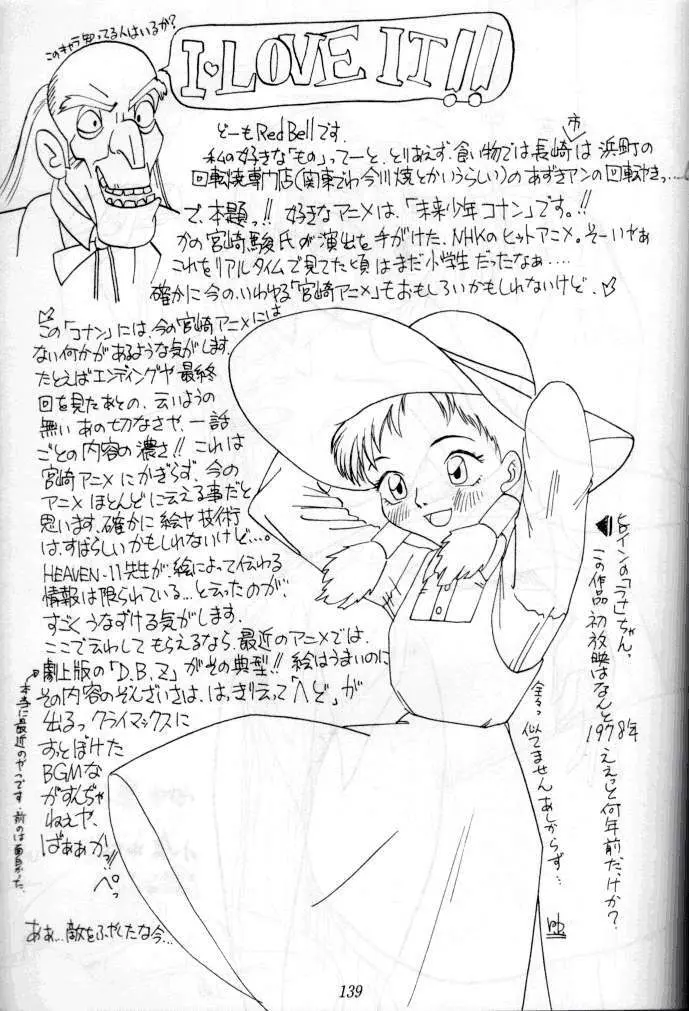 このキャラ知ってる人はいるか?
I♥LOVE IT!!
どーも Red Bellです。
私の好きな「もの」ってーと、とりあえず、食い物では長崎市は浜町の
回転焼専門店(関東でわ今川焼とかいうらしい)のあずきアンの回転やきっ…
で、本題っ!! 好きなアニメは、「未来少年コナン」です。!!
かの宮崎駿氏が演出を手がけた、NHKのヒットアニメ。そーいやぁ
これをリアルタイムで見てた頃はまだ小学生だったなぁ....
確かに今の、いわゆる「宮崎アニメ」もおもしろいかもしれないけど、
この「コナン」には、今の宮崎アニメには
ない何かがあるような気がします。
たとえばエンディングや最終
回を見たあとの、云いようの
無いあの切なさや、一話
ごとの内容の濃さ!! これは
宮崎アニメにかぎらず、今の
アニメほとんどに云える事だと
思います。確かに絵や技術
は、すばらしいかもしれないけど…。
HEAVEN-11先生が、絵によって伝わる
情報は限られている…と云ったのが、
すごくうなずける気がします。
ここで云わしてもらえるなら、最近のアニメでは、
劇上版の「D.B.Z」がその典型!! 絵はうまいのに
その内容のぞんざいさは、はっきり云って「へど」が
出るっ クライマックスに
すっとぼけた
BGMな
がすんぢゃ
ねえや、
ばぁぁかっ!!
ペっ
本当に最近のやつです。前のは面白かった。
あぁ…敵をふやしたな今…
ヒロインの「ラナ」ちゃん。
この作品初放映はなんと1978年
ええっと何年前だっけか?
余るっ似てません あしからず…
139